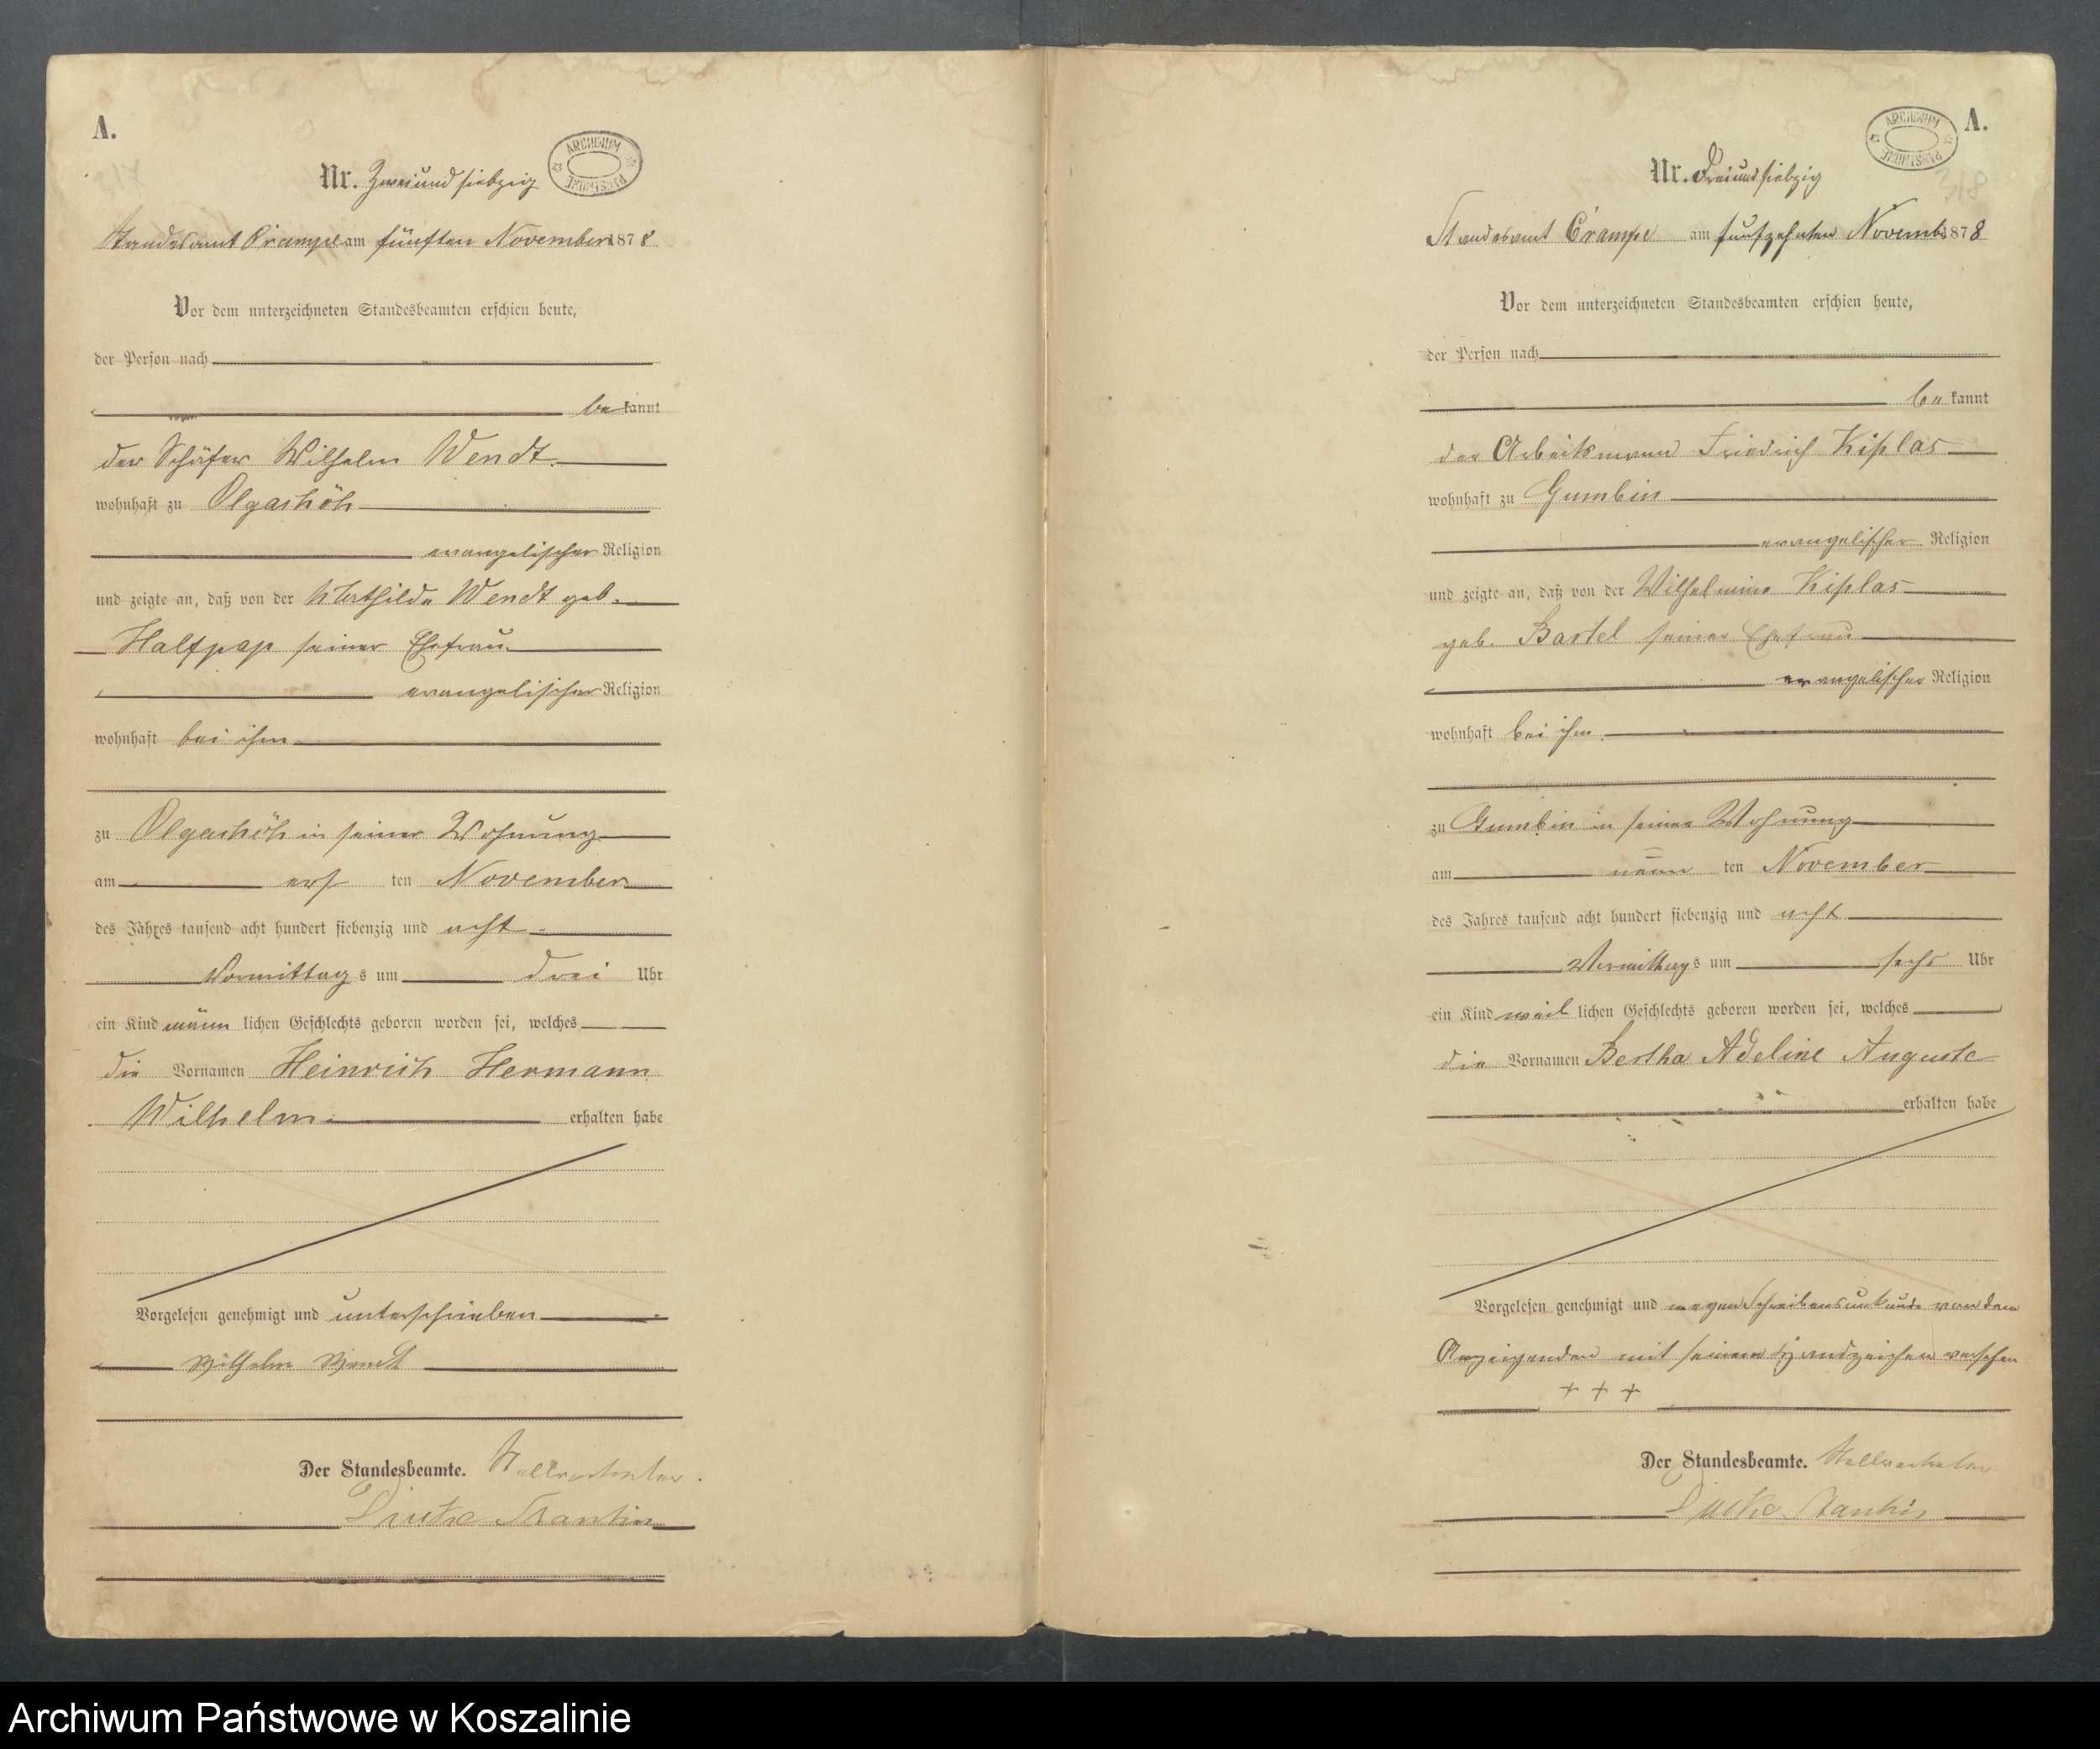 A.
ARCHIWUM PAŃSTWOWE
Nr. Zweiundsiebzig
Standesamt Crampe am fünften November 1878
Vor dem unterzeichneten Standesbeamten erschien heute,
der Person nach
bekannt
der Schäfer Wilhelm Wendt.
wohnhaft zu Olgashöh
evangelischer Religion
und zeigte an, daß von der Mathilde Wendt geb.
Halfpap seiner Ehefrau
evangelischer Religion
wohnhaft bei ihm
zu Olgashöh in seiner Wohnung
am ersten November
des Jahres tausend acht hundert siebenzig und acht
Vormittags um drei Uhr
ein Kind männlichen Geschlechts geboren worden sei, welches
die Vornamen Heinrich Hermann
Wilhelm erhalten habe
Vorgelesen genehmigt und unterschrieben
Wilhelm Wendt
Der Standesbeamte. Stellvertreter.
A.
ARCHIWUM PAŃSTWOWE
318
Nr. Dreiundsiebzig
Standesamt Crampe am funfzehnten Novemb. 1878
Vor dem unterzeichneten Standesbeamten erschien heute,
der Person nach
bekannt
der Arbeitsmann Friedrich Kißlas
wohnhaft zu Gumbin
evangelischer Religion
und zeigte an, daß von der Wilhelmine Kißlas
geb. Bartel seiner Ehefrau
evangelischer Religion
wohnhaft bei ihm
zu Gumbin in seiner Wohnung
am neunten November
des Jahres tausend acht hundert siebenzig und acht
Vormittags um sechs Uhr
ein Kind weiblichen Geschlechts geboren worden sei, welches
die Vornamen Bertha Adeline Auguste
erhalten habe
Vorgelesen genehmigt und wegen Schreibensunkunde von dem
Anzeigenden mit seinem Handzeichen versehen
+ + +
Der Standesbeamte. Stellvertreter
Archiwum Państwowe w Koszalinie